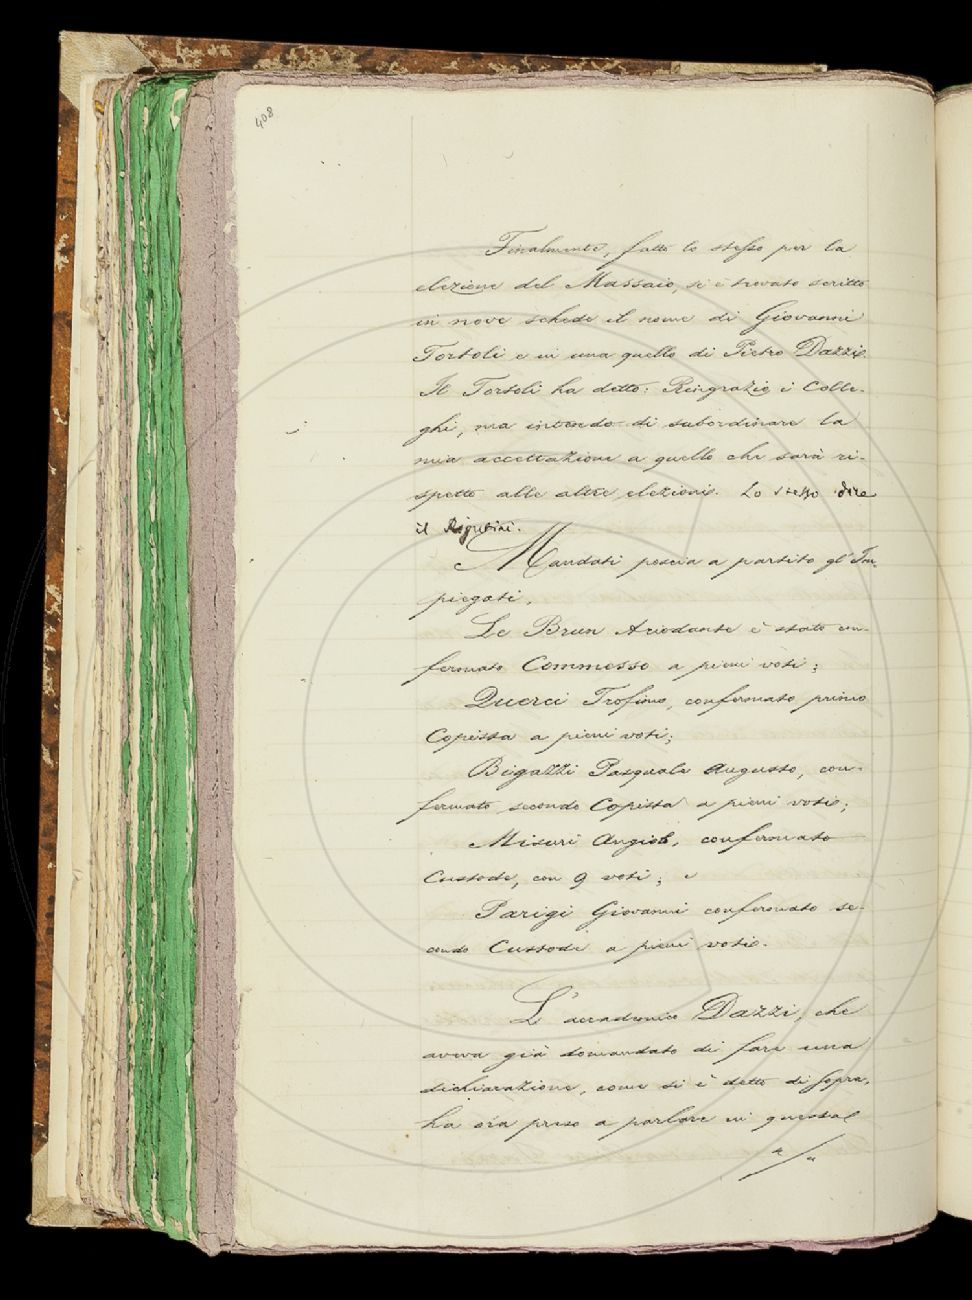 408
Finalmente, fatto lo stesso per la
elezione del Massaio, si è trovato scritto
in nove schede il nome di Giovanni
Tortoli e in una quello di Pietro Dazzi.
Il Tortoli ha detto: Ringrazio i Colle-
ghi, ma intendo di subordinare la
mia accettazione a quello che sarà ri-
spetto alle altre elezioni. Lo stesso dice
il Rigutini.
Mandati poscia a partito gl'Im-
piegati,
Le Brun Ariodante è stato con-
fermato Commesso a pieni voti;
Querci Trofimo, confermato primo
Copista a pieni voti;
Bigazzi Pasquale Augusto, con-
fermato secondo Copista a pieni voti;
Misuri Angiolo, confermato
Custode, con 9 voti; e
Parigi Giovanni confermato se-
condo Custode a pieni voti.
L'accademico Dazzi, che
aveva già domandato di fare una
dichiarazione, come si è detto di sopra,
ha ora preso a parlare in questa